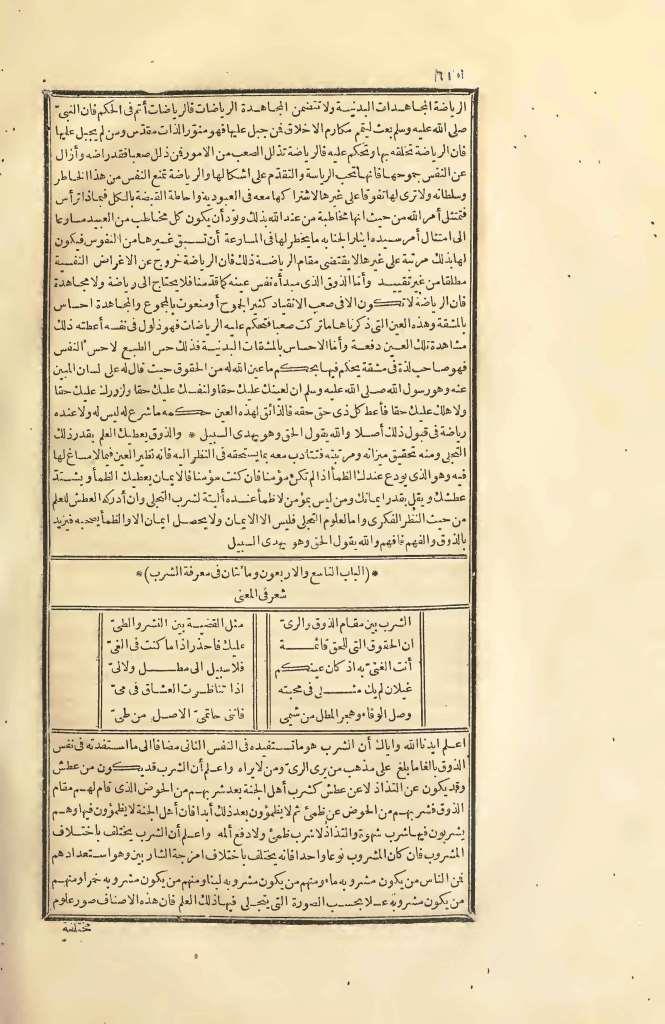 ٥٤٩
الرياضة المجاهدات البدنية ولا تتضمن المجاهدة الرياضات فالرياضات أتم فى الحكم فان النبى
صلى الله عليه وسلم بعث ليتمم مكارم الاخلاق فمن جبل عليها فهو منور الذات مقدس ومن لم يجبل عليها
فان الرياضة تخلقه بها وتحكم عليه فالرياضة تذلل الصعب من الامور فمن ذلل صعبا فقد راضه وأزال
عن النفس جموحها فانها تحب الرياسة والتقدم على اشكالها والرياضة تمنع النفس من هذا الخاطر
وسلطانه ولا ترى لها تفوقا على غيرها لاشتراكها معه فى العبودية واحاطة القبضة بالكل فبماذا ترأس
فتمتثل أمر الله من حيث انها مخاطبة من عند الله بذلك وتود أن يكون كل مخاطب من العبيد مسارعا
الى امتثال أمر سيده ايثارا لجنابه ما يخطر لها فى المسارعة أن تسبق غيرها من النفوس فيكون
لها بذلك مزية على غيرها لا يقتضى مقام الرياضة ذلك فان الرياضة خروج عن الاغراض النفسية
مطلقا من غير تقييد وأما الذوق الذى مبدأه نفس عينه كما قدمنا فلا يحتاج الى رياضة ولا مجاهدة
فان الرياضة لا تكون الا فى صعب الانقياد كثير الجموح أو منعوت بالجموح والمجاهدة احساس
بالمشقة وهذه العين التى ذكرناها ما تركت صعبا فتحكم عليه الرياضات فهو ذلول فى نفسه أعطته ذلك
مشاهدة تلك العين دفعة وأما الاحساس بالمشقات البدنية فذلك حس الطبع لا حس النفس
فهو صاحب لذة فى مشقة يحكم فيها بحكم ما عين الله له من الحقوق حيث قال له على لسان المبين
عنه وهو رسول الله صلى الله عليه وسلم ان لعينك عليك حقا ولنفسك عليك حقا ولزورك عليك حقا
ولاهلك عليك حقا فأعط كل ذى حق حقه فالذائق لهذه العين حكمه ما شرع له ليس له ولا عنده
رياضة فى قبول ذلك أصلا والله يقول الحق وهو يهدى السبيل * والذوق يعطيك العلم بقدر ذلك
التجلى ومنه تحقيق ميزانه ومرتبته فتتأدب معه بما يستحقه فى النظر اليه فانه نظير العين فيما لا مساغ لها
فيه وهو الذى يودع عندك الظمأ اذا لم تكن مؤمنا فان كنت مؤمنا فالايمان يعطيك الظمأ ويشتد
عطشك ويقل بقدر ايمانك ومن ليس بمؤمن لا ظمأ عنده ألبتة لشرب التجلى وان أدركه العطش للعلم
من حيث النظر الفكرى وأما لعلوم التجلى فليس الا الايمان ولا يحصل ايمان الا والظمأ يصحبه فيزيد
بالذوق والفهم فافهم والله يقول الحق وهو يهدى السبيل
* (الباب التاسع والاربعون ومائتان فى معرفة الشرب) *
شعر فى المعنى
الشرب بين مقام الذوق والرى مثل القضية بين النشر والطى
ان الحقوق التى للحق قائمة عليك فاحذر اذا ما كنت فى الغى
أنت الغنى به اذ كان عينكم فلا سبيل الى مطل ولا لى
غيلان لم يك مثلى فى محبته اذا تناظرت العشاق فى مى
وصل الوفاء وهجر المطل من شيمى فاننى حاتمى الاصل من طى
اعلم ايدنا الله واياك أن الشرب هو ما تستفيده فى النفس الثانى مضافا الى ما استفدته فى نفس
الذوق بالغا ما بلغ على مذهب من يرى الرى ومن لا يراه واعلم أن الشرب قد يكون من عطش
وقد يكون عن التذاذ لا عن عطش كشرب أهل الجنة بعد شربهم من الحوض الذى قام لهم مقام
الذوق فشربهم من الحوض عن ظمئ ثم لا يظمؤون بعد ذلك أبدا فان أهل الجنة لا يظمؤون فيها وهم
يشربون فيها شرب شهوة والتذاذ لا شرب ظمئ ولا دفع ألمه واعلم أن الشرب يختلف باختلاف
المشروب فان كان المشروب نوعا واحدا فانه يختلف باختلاف امزجة الشاربين وهو استعدادهم
فمن الناس من يكون مشروبه ماء ومنهم من يكون مشروبه لبنا ومنهم من يكون مشروبه خمرا ومنهم
من يكون مشروبه عسلا بحسب الصورة التى يتجلى فيها ذلك العلم فان هذه الاصناف صور علوم
مختلفة